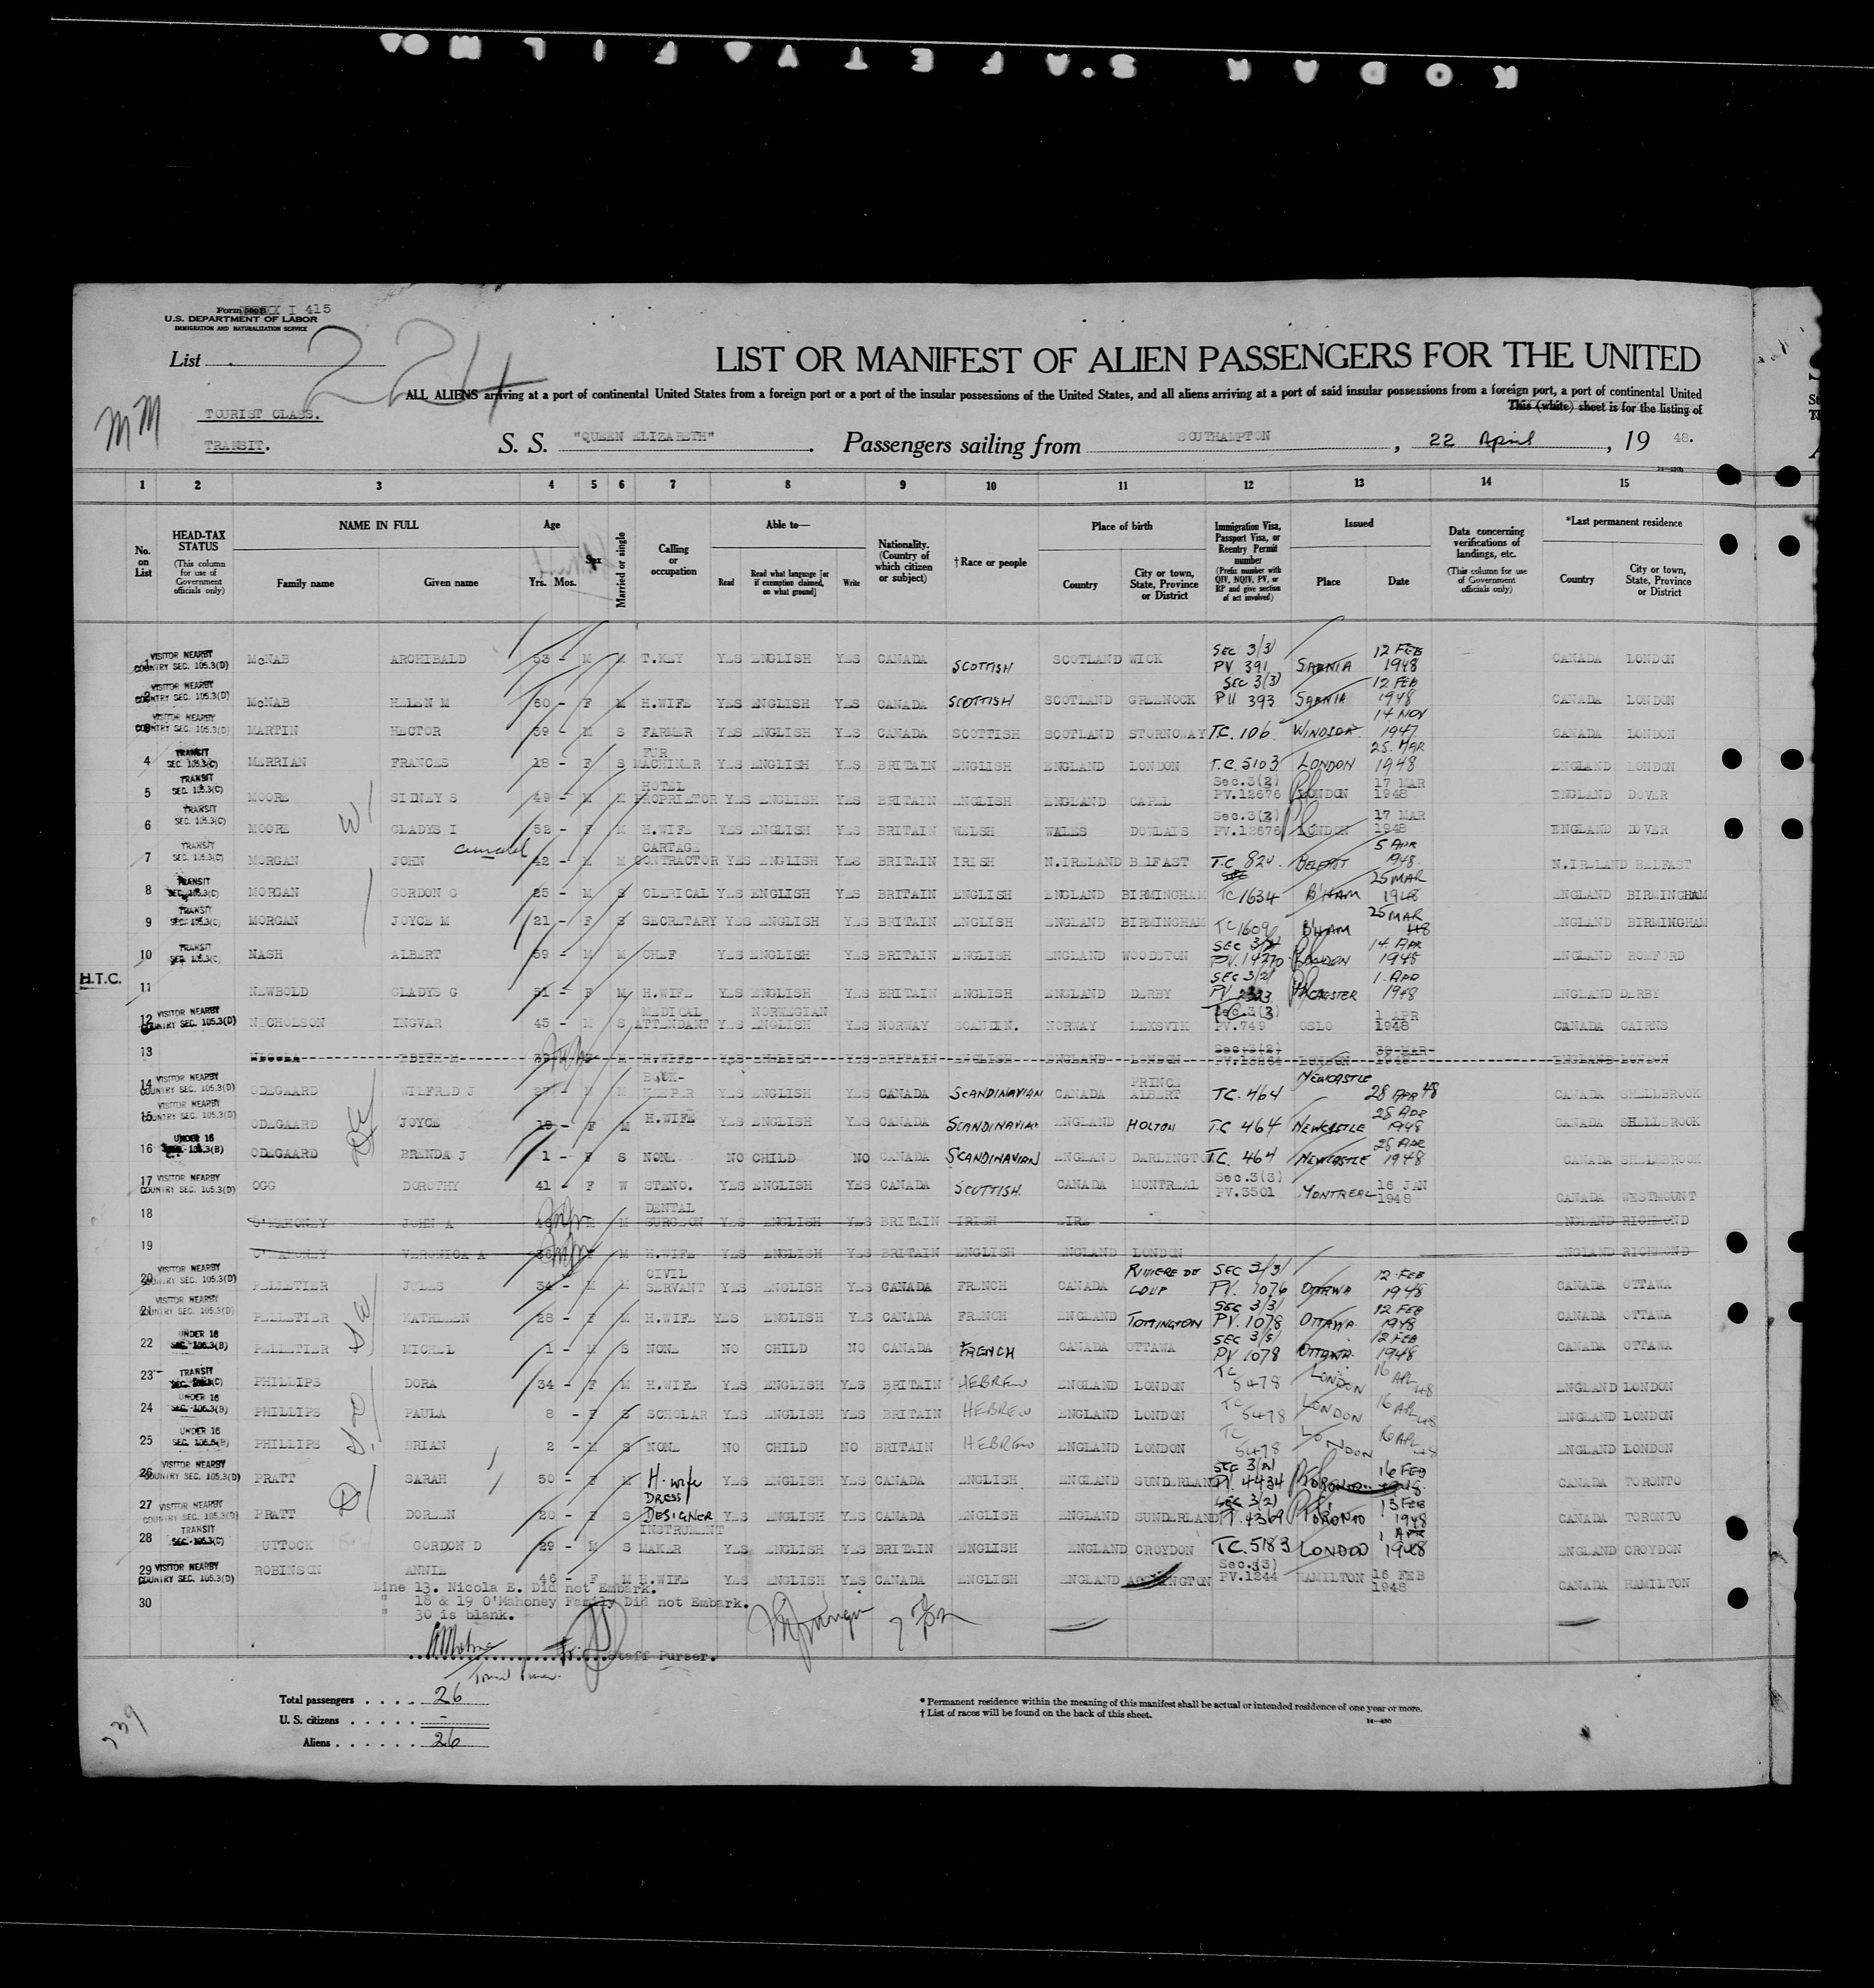 KODAK S'AFETY FILM
Form 500B I 415
U.S. DEPARTMENT OF LABOR
IMMIGRATION AND NATURALIZATION SERVICE
List
224
LIST OR MANIFEST OF ALIEN PASSENGERS FOR THE UNITED
ALL ALIENS arriving at a port of continental United States from a foreign port or a port of the insular possessions of the United States, and all aliens arriving at a port of said insular possessions from a foreign port, a port of continental United
This (white) sheet is for the listing of
MM
TOURIST CLASS.
TRANSIT.
S. S. "QUEEN ELIZABETH". Passengers sailing from SOUTHAMPTON, 22 April, 19 48.
1 2 3 4 5 6 7 8 9 10 11 12 13 14 15
No. on List
HEAD-TAX STATUS (This column for use of Government officials only)
NAME IN FULL
Family name Given name
Age
Yrs. Mos.
Sex
Married or single
Calling or occupation
Able to—
Read Read what language [or if exemption claimed, on what ground] Write
Nationality. (Country of which citizen or subject)
†Race or people
Place of birth
Country City or town, State, Province or District
Immigration Visa, Passport Visa, or Reentry Permit number (Prefix number with QIV, NQIV, PV, or RP and give section of act involved)
Issued
Place Date
Data concerning verifications of landings, etc. (This column for use of Government officials only)
*Last permanent residence
Country City or town, State, Province or District
1 VISITOR NEARBY COUNTRY SEC. 105.3(D) McNAB ARCHIBALD 53 - M M T.KEY YES ENGLISH YES CANADA SCOTTISH SCOTLAND WICK SEC 3/3/ PV 391 SARNIA 12 FEB 1948 CANADA LONDON
2 VISITOR NEARBY COUNTRY SEC. 105.3(D) McNAB HELEN M 60 - F M H.WIFE YES ENGLISH YES CANADA SCOTTISH SCOTLAND GREENOCK SEC 3/3) PV 393 SARNIA 12 FEB 1948 CANADA LONDON
3 VISITOR NEARBY COUNTRY SEC. 105.3(D) MARTIN HECTOR 39 - M S FARMER YES ENGLISH YES CANADA SCOTTISH SCOTLAND STORNOWAY TC. 106 WINDSOR 14 NOV 1947 CANADA LONDON
4 TRANSIT SEC. 105.3(C) MERRIAN FRANCES 18 - F S FUR MACHINER YES ENGLISH YES BRITAIN ENGLISH ENGLAND LONDON T.C. 5103 LONDON 25. MAR 1948 ENGLAND LONDON
5 TRANSIT SEC. 105.3(C) MOORE SIDNEY S 49 - M M HOTEL PROPRIETOR YES ENGLISH YES BRITAIN ENGLISH ENGLAND CAPEL Sec.3(2) PV.12676 LONDON 17 MAR 1948 ENGLAND DOVER
6 TRANSIT SEC. 105.3(C) MOORE GLADYS I 52 - F M H.WIFE YES ENGLISH YES BRITAIN WELSH WALES DOWLAIS Sec.3(2) PV.12676 LONDON 17 MAR 1948 ENGLAND DOVER
7 TRANSIT SEC. 105.3(C) MORGAN JOHN 42 - M M CARTAGE CONTRACTOR YES ENGLISH YES BRITAIN IRISH N.IRELAND BELFAST T.C. 820. BELFAST 5 APR 1948. N.IRELAND BELFAST
8 TRANSIT SEC. 105.3(C) MORGAN GORDON G 25 - M S CLERICAL YES ENGLISH YES BRITAIN ENGLISH ENGLAND BIRMINGHAM TC 1634 B'HAM 25 MAR 1948 ENGLAND BIRMINGHAM
9 TRANSIT SEC. 105.3(C) MORGAN JOYCE M 21 - F S SECRETARY YES ENGLISH YES BRITAIN ENGLISH ENGLAND BIRMINGHAM TC 1609 B'HAM 25 MAR 48 ENGLAND BIRMINGHAM
10 TRANSIT SEC. 105.3(C) NASH ALBERT 59 - M M CHEF YES ENGLISH YES BRITAIN ENGLISH ENGLAND WOODSTON SEC 3/2/ PV. 14270 LONDON 14. APR 1948 ENGLAND ROMFORD
H.T.C.
11 NEWBOLD GLADYS G 51 - F M H.WIFE YES ENGLISH YES BRITAIN ENGLISH ENGLAND DERBY SEC 3/2/ PV 2323 M'CHESTER 1. APR 1948 ENGLAND DERBY
12 VISITOR NEARBY COUNTRY SEC. 105.3(D) NICHOLSON INGVAR 45 - M S MEDICAL ATTENDANT YES NORWEGIAN ENGLISH YES NORWAY SCANDIN. NORWAY LEKSVIK Sec.3(3) PV.749 OSLO 1 APR 1948 CANADA CAIRNS
13 NICOLA EDITH M 39 F M H.WIFE YES ENGLISH YES BRITAIN ENGLISH ENGLAND LONDON Sec.3(2) PV.13264 LONDON 30 MAR 1948 ENGLAND LONDON
14 VISITOR NEARBY COUNTRY SEC. 105.3(D) ODEGAARD WILFRED J 27 - M M BOOK-KEEPER YES ENGLISH YES CANADA SCANDINAVIAN CANADA PRINCE ALBERT TC. 464 NEWCASTLE 28 APR 48 CANADA SHELLBROOK
15 VISITOR NEARBY COUNTRY SEC. 105.3(D) ODEGAARD JOYCE 19 - F M H.WIFE YES ENGLISH YES CANADA SCANDINAVIAN ENGLAND HOLTON TC 464 NEWCASTLE 28 APR 1948 CANADA SHELLBROOK
16 UNDER 16 SEC. 105.3(B) ODEGAARD BRENDA J 1 - F S NONE NO CHILD NO CANADA SCANDINAVIAN ENGLAND DARLINGTON T.C. 464 NEWCASTLE 28 APR 1948 CANADA SHELLBROOK
17 VISITOR NEARBY COUNTRY SEC. 105.3(D) OGG DOROTHY 41 - F W STENO. YES ENGLISH YES CANADA SCOTTISH. CANADA MONTREAL Sec.3(3) PV.3501 MONTREAL 16 JAN 1948 CANADA WESTMOUNT
18 O'MAHONEY JOHN A M DENTAL SURGEON YES ENGLISH YES BRITAIN IRISH EIRE ENGLAND RICHMOND
19 O'MAHONEY VERONICA A F M H.WIFE YES ENGLISH YES BRITAIN ENGLISH ENGLAND LONDON ENGLAND RICHMOND
20 VISITOR NEARBY COUNTRY SEC. 105.3(D) PELLETIER JULES 34 - M M CIVIL SERVANT YES ENGLISH YES CANADA FRENCH CANADA RIVIERE DU LOUP SEC 3/3/ PV. 1076 OTTAWA 12 FEB 1948 CANADA OTTAWA
21 VISITOR NEARBY COUNTRY SEC. 105.3(D) PELLETIER KATHLEEN 28 - F M H.WIFE YES ENGLISH YES CANADA FRENCH ENGLAND TOTTINGTON SEC 3/3/ PV. 1078 OTTAWA. 12 FEB 1948 CANADA OTTAWA
22 UNDER 16 SEC. 105.3(B) PELLETIER MICHEL 1 - M S NONE NO CHILD NO CANADA FRENCH CANADA OTTAWA SEC 3/3/ PV 1078 OTTAWA. 12 FEB 1948 CANADA OTTAWA
23 TRANSIT SEC. 105.3(C) PHILLIPS DORA 34 - F M H.WIFE YES ENGLISH YES BRITAIN HEBREW ENGLAND LONDON TC 5478 LONDON 16 APL 48 ENGLAND LONDON
24 UNDER 16 SEC. 105.3(B) PHILLIPS PAULA 8 - F S SCHOLAR YES ENGLISH YES BRITAIN HEBREW ENGLAND LONDON TC 5478 LONDON 16 APL 48 ENGLAND LONDON
25 UNDER 16 SEC. 105.3(B) PHILLIPS BRIAN 2 - M S NONE NO CHILD NO BRITAIN HEBREW ENGLAND LONDON TC 5478 LONDON 16 APL 48 ENGLAND LONDON
26 VISITOR NEARBY COUNTRY SEC. 105.3(D) PRATT SARAH 50 - F M H. wife YES ENGLISH YES CANADA ENGLISH ENGLAND SUNDERLAND SEC 3/2/ PV. 4434 TORONTO 16 FEB 1948 CANADA TORONTO
27 VISITOR NEARBY COUNTRY SEC. 105.3(D) PRATT DOREEN 20 - F S DRESS DESIGNER YES ENGLISH YES CANADA ENGLISH ENGLAND SUNDERLAND SEC 3/2) PV. 4369 TORONTO 13 FEB 1948 CANADA TORONTO
28 TRANSIT SEC. 105.3(C) PUTTOCK GORDON D 29 - M S INSTRUMENT MAKER YES ENGLISH YES BRITAIN ENGLISH ENGLAND CROYDON T.C. 5183 LONDON 1 APR 1948 ENGLAND CROYDON
29 VISITOR NEARBY COUNTRY SEC. 105.3(D) ROBINSON ANNIE 46 - F M H.WIFE YES ENGLISH YES CANADA ENGLISH ENGLAND ACCRINGTON Sec.3(3) PV.1244 HAMILTON 16 FEB 1948 CANADA HAMILTON
30
Line 13. Nicola E. Did not Embark.
" 18 & 19 O'Mahoney Family Did not Embark.
" 30 is blank.
Staff Purser.
Total passengers . . . . . 26
U. S. citizens . . . . . . -
Aliens . . . . . . 26
* Permanent residence within the meaning of this manifest shall be actual or intended residence of one year or more.
† List of races will be found on the back of this sheet.
239